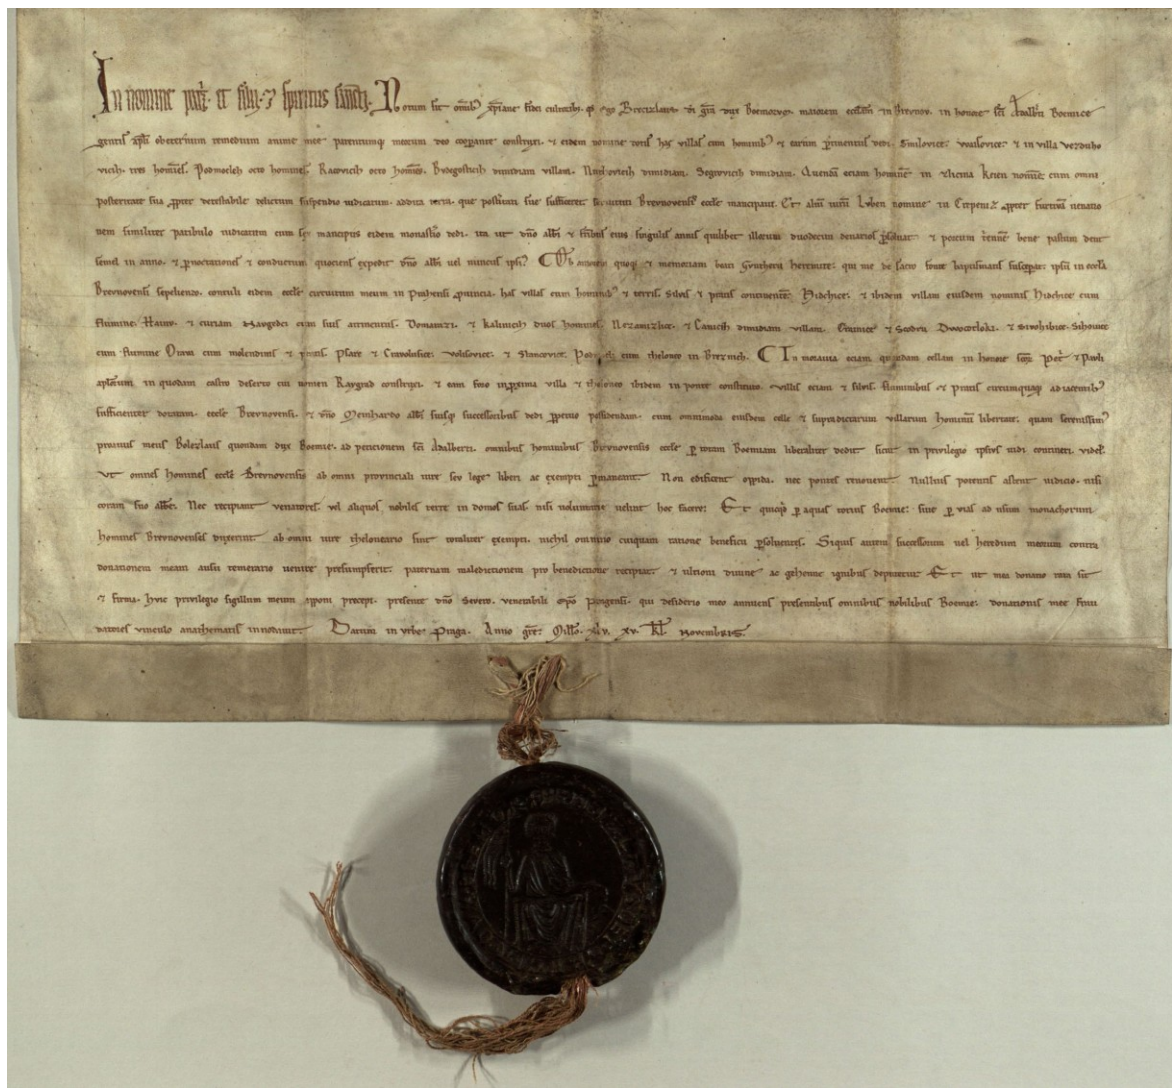 In nomine pat̄s et filii ⁊ spiritus sanc̄ti. Notum sit om̄ib᷒ xp̄iane fidei cultorib᷒. q̄ ego Brecizlaus di gr̄a dux Boemorum maiorem eccl̄iam in Brevnov. in honore sc̄i Adalb̄ti Boemice
gentis ap̄li ob eternum remedium anime mee parentumq᷒ meorum deo cooperante construxi. ⁊ eidem has villas cum hominib᷒ ⁊ earum p̄tinentiis dedi. Smilovice. ⁊ in villa
vicih. tres hom̄ies. Podmokleh octo homines. Racovicih octo hom̄ies. Bydegosticih dimidiam villam. dimidiam. dimidiam. Quendā eciam hominē in Zlicina nomīe cum omni
posteritate sua p̄pter detestabile delictum suspendio iudicatum. addita terra. que posteritati sue sufficeret. servituti Brevnovensi eccl̄e mancipavi. Et aliū virū Lvben nomine in p̄pter furtivā venatio
nem similiter patibulo iudicatum cum mancipiis eidem monast̄io dedi. ita ut dn̄o abb̄i ⁊ fr̄ibus eius singulis annis quilibet illorum duodecim denarios p̄soluat ⁊ porcum bene pastum det
semel in anno. ⁊ p̄noctationes ⁊ conductum quociens expedit dn̄o abb̄i vel nunciis ipsi᷒. Ob amorem quoq᷒ ⁊ memoriam beati Gvntherii heremite. qui me de sacro fonte baptismatis suscepit. ipsū in eccl̄a
Brevnovensi sepeliendo. contuli eidem eccl̄e circuitum meum in p̄uincia. has villas cum hominib᷒ ⁊ terris. silvis ⁊ pratis continentē. Hidchice. ⁊ ibidem villam eiusdem nominis Hidchice cum
flumine ⁊ curiam cum suis attinentiis. Domamzi. ⁊ Kalinicih duos homines. Nezamizlice. ⁊ dimidiam villam. ⁊ ⁊ Sihovice
cum flumine Otava cum molendinis ⁊ pratis. Psare ⁊ Cravolusice. Volusovice. ⁊ Stancovice. cum theloneo in Brezniceh. In moravia eciam quandam cellam in honore sc̄orum Pet̄i ⁊ Pauli
ap̄lorum in quodam castro deserto cui nomen Raygrad construxi. ⁊ eam foro in p̄xima villa ⁊ theloneo ibidem in ponte constituto. villis eciam ⁊ silvis. fluminibus ⁊ pratis circumquaq᷒ adiacentib᷒
sufficienter dotatam. eccl̄e Brevnovensi. ⁊ dn̄o Meinhardo abb̄i suisq᷒ successoribus dedi p̄petuo possidendam. cum omnimoda eiusdem celle ⁊ supradictarum villarum hominū libertate. quam serenissim᷒
proavus meus Bolezlaus quondam dux Boemie. ad peticionem sc̄i Adalberti. omnibus hominibus Brevnovensis eccl̄e p̄ totam Boemiam liberaliter dedit sicut in privilegio ipsius vidi contineri. videl̄
Vt omnes homines eccl̄e Brevnovensis ab omni provinciali iure sev lege liberi ac exempti p̄maneant. Non edificent oppida. nec pontes renovent. Nullius potentis astent iudicio. nisi
coram suo abb̄e. Nec recipiant venatores. vel aliquos nobiles terre in domos suas. nisi voluntarie velint hoc facere. Et quicq̄d p̄ aquas totius Boemie. sive p̄ vias ad usum monachorum
homines Brevnovenses duxerint. ab omni iure theloneario sint totaliter exempti. nichil omnino cuiquam ratione beneficii p̄solventes. Siquis autem successorum vel heredum meorum contra
donationem meam ausu temerario venire presumpserit. paternam maledictionem pro benedictione recipiat. ⁊ ultioni divine ac gehenne ignibus deputetur. Et ut mea donatio rata sit
⁊ firma. Hvic privilegio sigillum meum apponi precepi. presente dn̄o Severo. venerabili ep̄o Pragensi. qui desiderio meo annuens presentibus omnibus nobilibus Boemie. donationis mee
datores vinculo anathematis innodavit. Datum in urbe Praga. Anno gr̄e. Mill̄o. xlv. xv. Kl̄. Novembris.